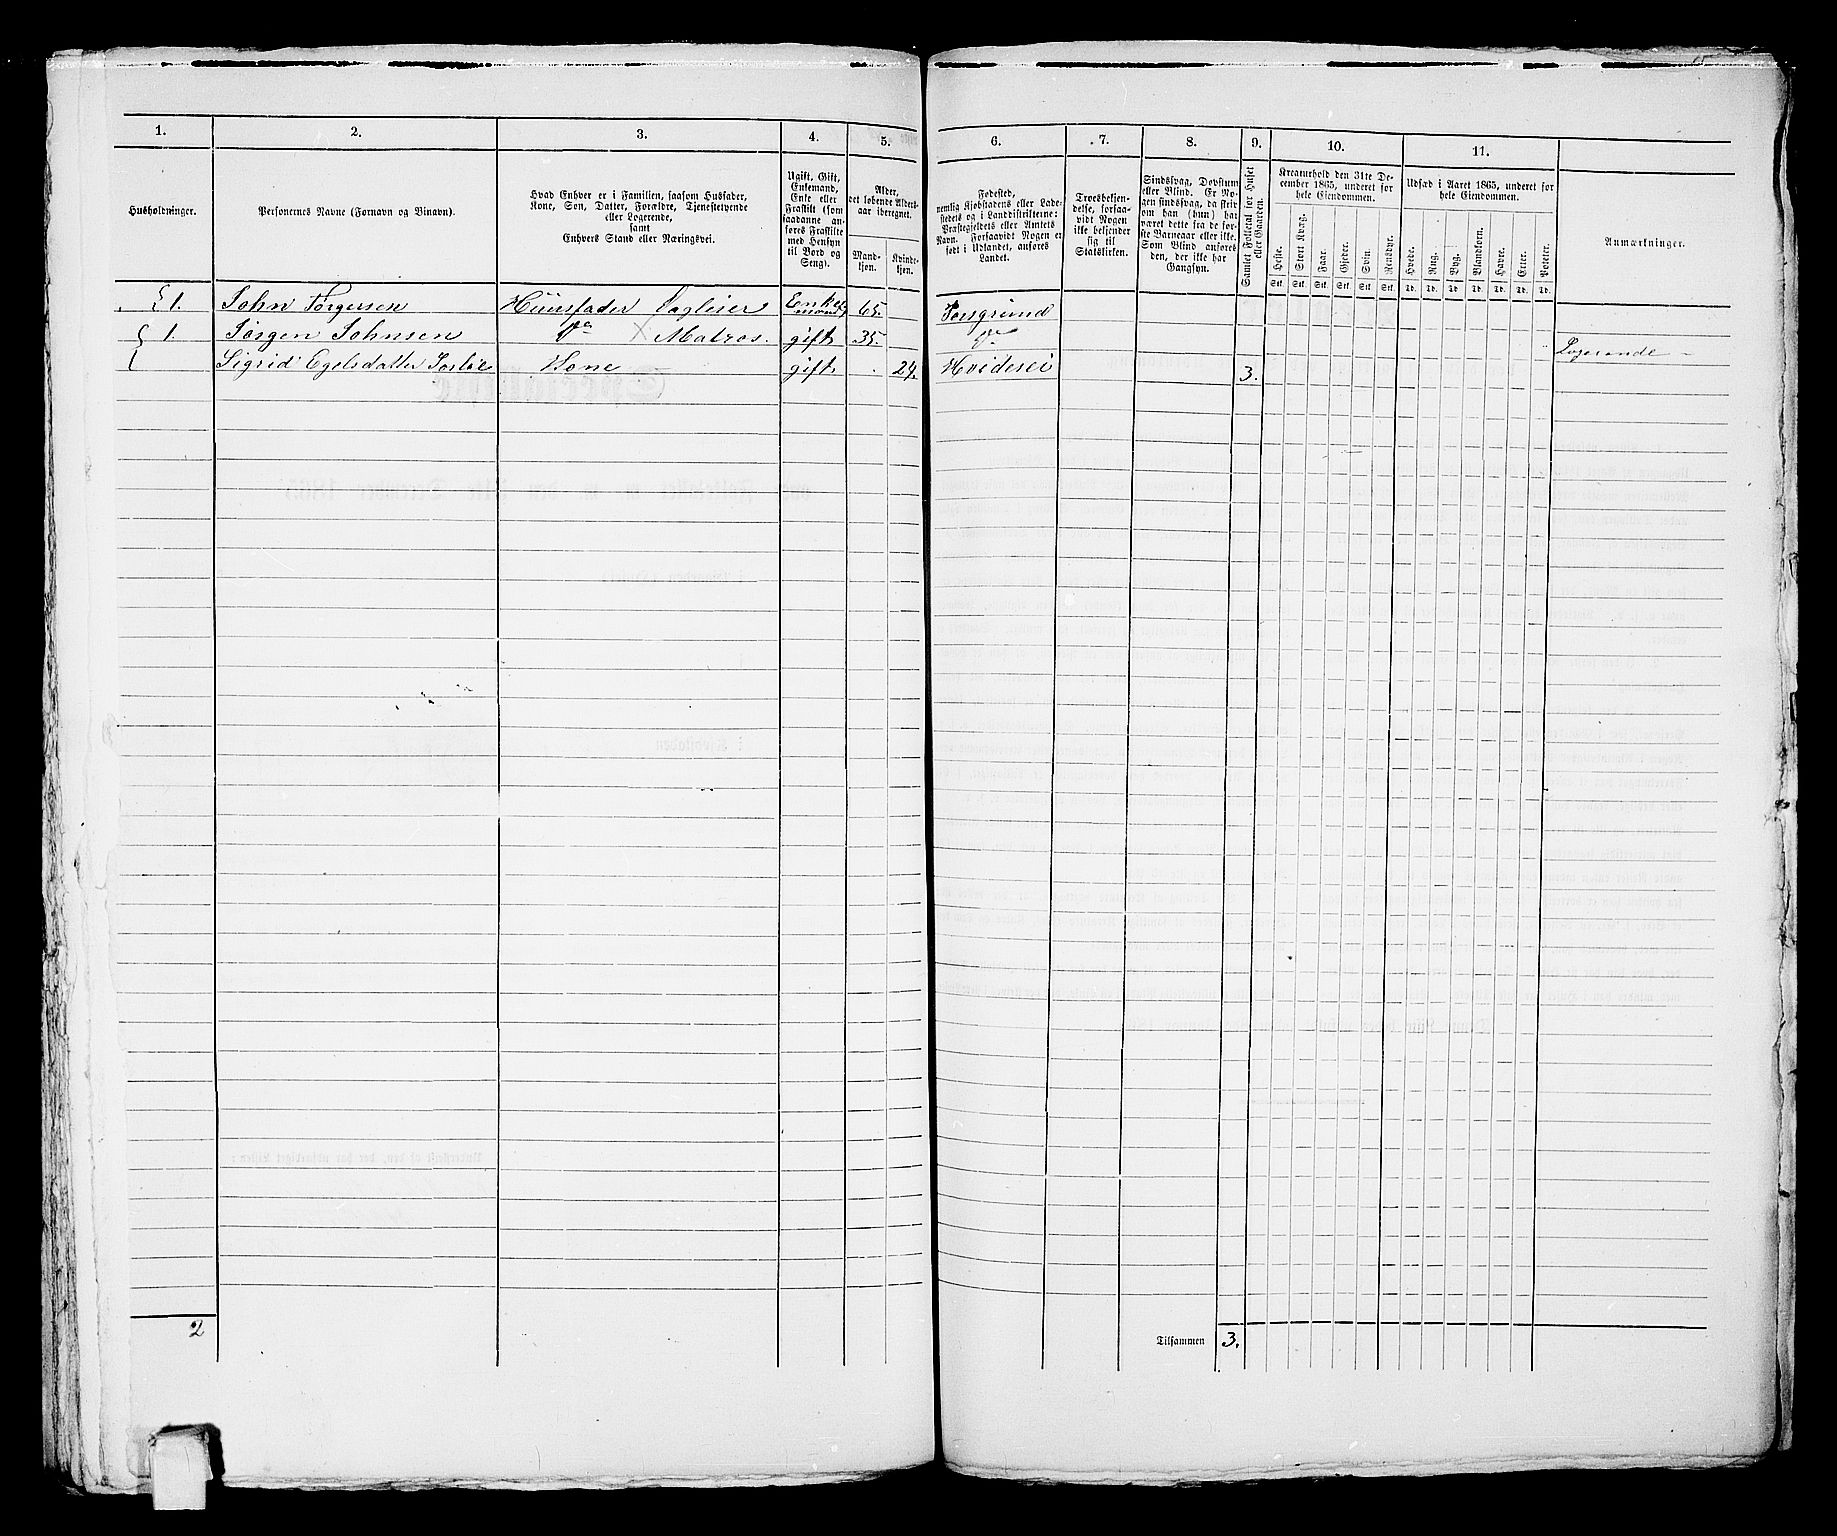 1. 2. 3. 4. 5. 6. 7. 8. 9. 10. 11.
Husholdninger.
Personernes Navne (Fornavn og Binavn).
Hvad Enhver er i Familien, saasom Husfader,
Kone, Søn, Datter, Forældre, Tjenestetyende
eller Logerende,
samt
Enhvers Stand eller Næringsvei.
Ugift, Gift,
Enkemand,
Enke eller
Fraskilt (som
saadanne an-
føres Fraskilte
med Hensyn
til Bord og
Seng).
Alder,
det løbende Alders-
aar iberegnet.
Mand-
kjøn.
Kvinde-
kjøn.
Fødested,
nemlig Kjøbstadens eller Lade-
stedets og i Landdistrikterne:
Præstegjeldets eller Amtets
Navn. Forsaavidt Nogen er
født i Udlandet, anføres
Landet.
Troesbekjen-
delse, forsaa-
vidt Nogen
ikke bekjender
sig til
Statskirken.
Sindssvag, Døvstum
eller Blind. Er No-
gen sindssvag, da skriv
om han (hun) har
været dette fra de før-
ste Barneaar eller ikke.
Som Blind anføres
den, der ikke har
Gangsyn.
Samlet Folketal for Huset
eller Gaarden.
Kreaturhold den 31te De-
cember 1865, underet for
hele Eiendommen.
Heste. Stort Kvæg. Faar. Gjeder. Svin. Rensdyr.
Stk. Stk. Stk. Stk. Stk. Stk.
Udsæd i Aaret 1865, underet for
hele Eiendommen.
Hvede. Rug. Byg. Blandkorn. Havre. Erter. Poteter.
Td. Td. Td. Td. Td. Td. Td.
Anmærkninger.
1. John Jørgersen Huusfader Enkemand 65.
1. Jørgen Johnsen do Matros. gift 35. do Logerende
Sigrid Egelsdatter Kone gift 24. Hvidesei 3.
2 Tilsammen 3.